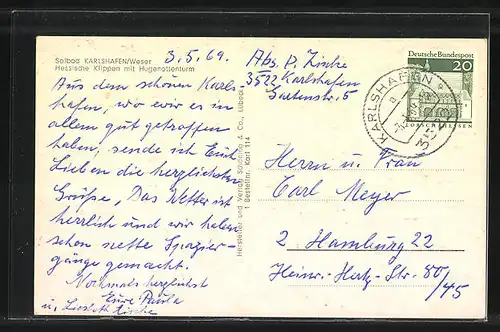 Solbad KARLSHAFEN/Weser
Hessische Klippen mit Hugenottenturm
3.5.69.
Aus dem schönen Karls-
hafen, wo wir es in
allem gut getroffen
haben, sende ich Euch
Lieben die herzlichsten
Grüße, Das Wetter ist
herrlich und wir haben
schon nette Spazier-
gänge gemacht.
Nochmals herzlichst
Eure Paula
u. Lieslott Zische
Hersteller und Verlag Schöning & Co., Lübeck
1 Bestellnr. Karl 114
Abs. P. Zische
3522 Karlshafen
Gartenstr. 5
Deutsche Bundespost
20
LORSCH/HESSEN
KARLSHAFEN
Herrn u. Frau
Carl Meyer
2 Hamburg 22
Heinr.-Hertz-Str. 80/
45